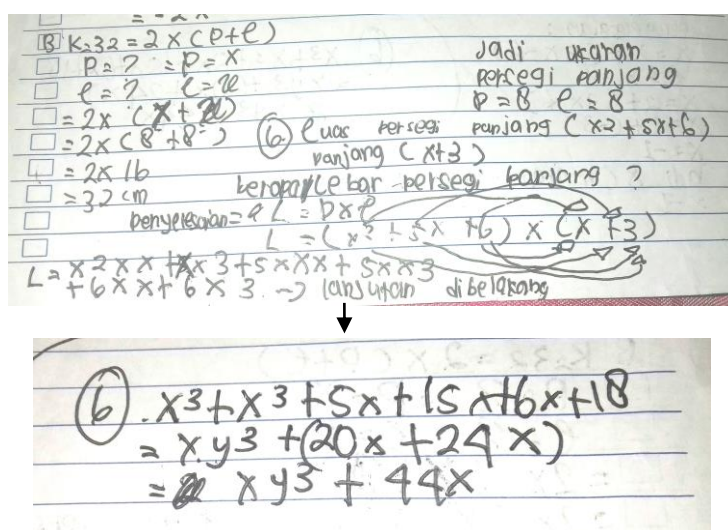 = -2x
B K=32 = 2x(p+l)
p=? = p=x
l=? l=x
= 2x (x+x)
= 2x(8+8)
= 2x16
= 32 cm
Jadi ukuran
persegi panjang
p=8 l=8
6. Luas persegi panjang (x2+5x+6)
panjang (x+3)
berapa lebar persegi panjang ?
penyelesaian = L = pxl
L = (x²+5x+6) x (x+3)
L = x2xx + x3+5xxx + 5xx3
+6xx+6x3 -> lanjutan dibelakang
6 . x³+x³+5x+15x+6x+18
= xy³+(20x+24x)
= xy³+44x